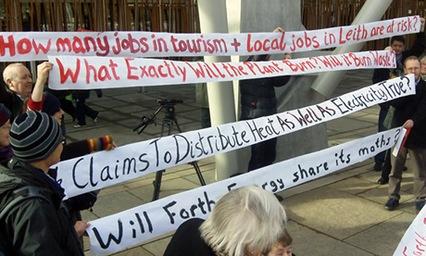 How many jobs in tourism + local jobs in Leith are at risk?
What Exactly Will the Plant Burn? Will it Burn Waste?
Claims To Distribute Heat As Well As Electricity True?
Will Forth Energy share its maths?